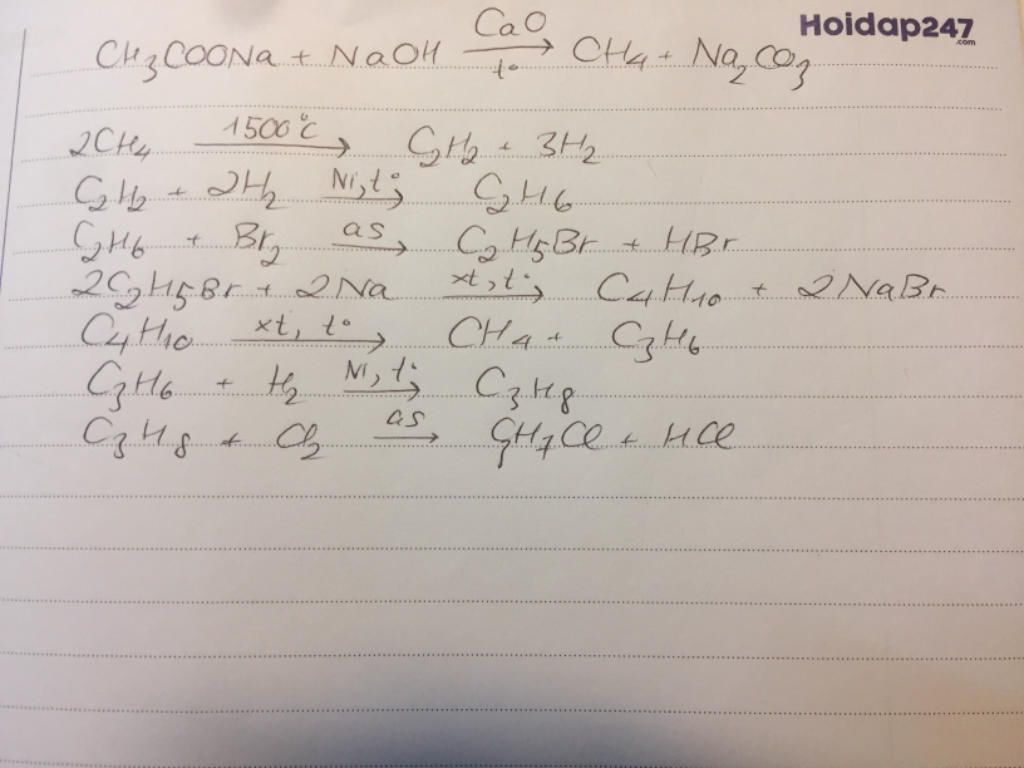 Hoidap247
.com
CH₃COONa + NaOH CaO/t° → CH₄ + Na₂CO₃
2CH₄ 1500°C → C₂H₂ + 3H₂
C₂H₂ + 2H₂ Ni, t° → C₂H₆
C₂H₆ + Br₂ as → C₂H₅Br + HBr
2C₂H₅Br + 2Na xt, t° → C₄H₁₀ + 2NaBr
C₄H₁₀ xt, t° → CH₄ + C₃H₆
C₃H₆ + H₂ Ni, t° → C₃H₈
C₃H₈ + Cl₂ as → C₃H₇Cl + HCl